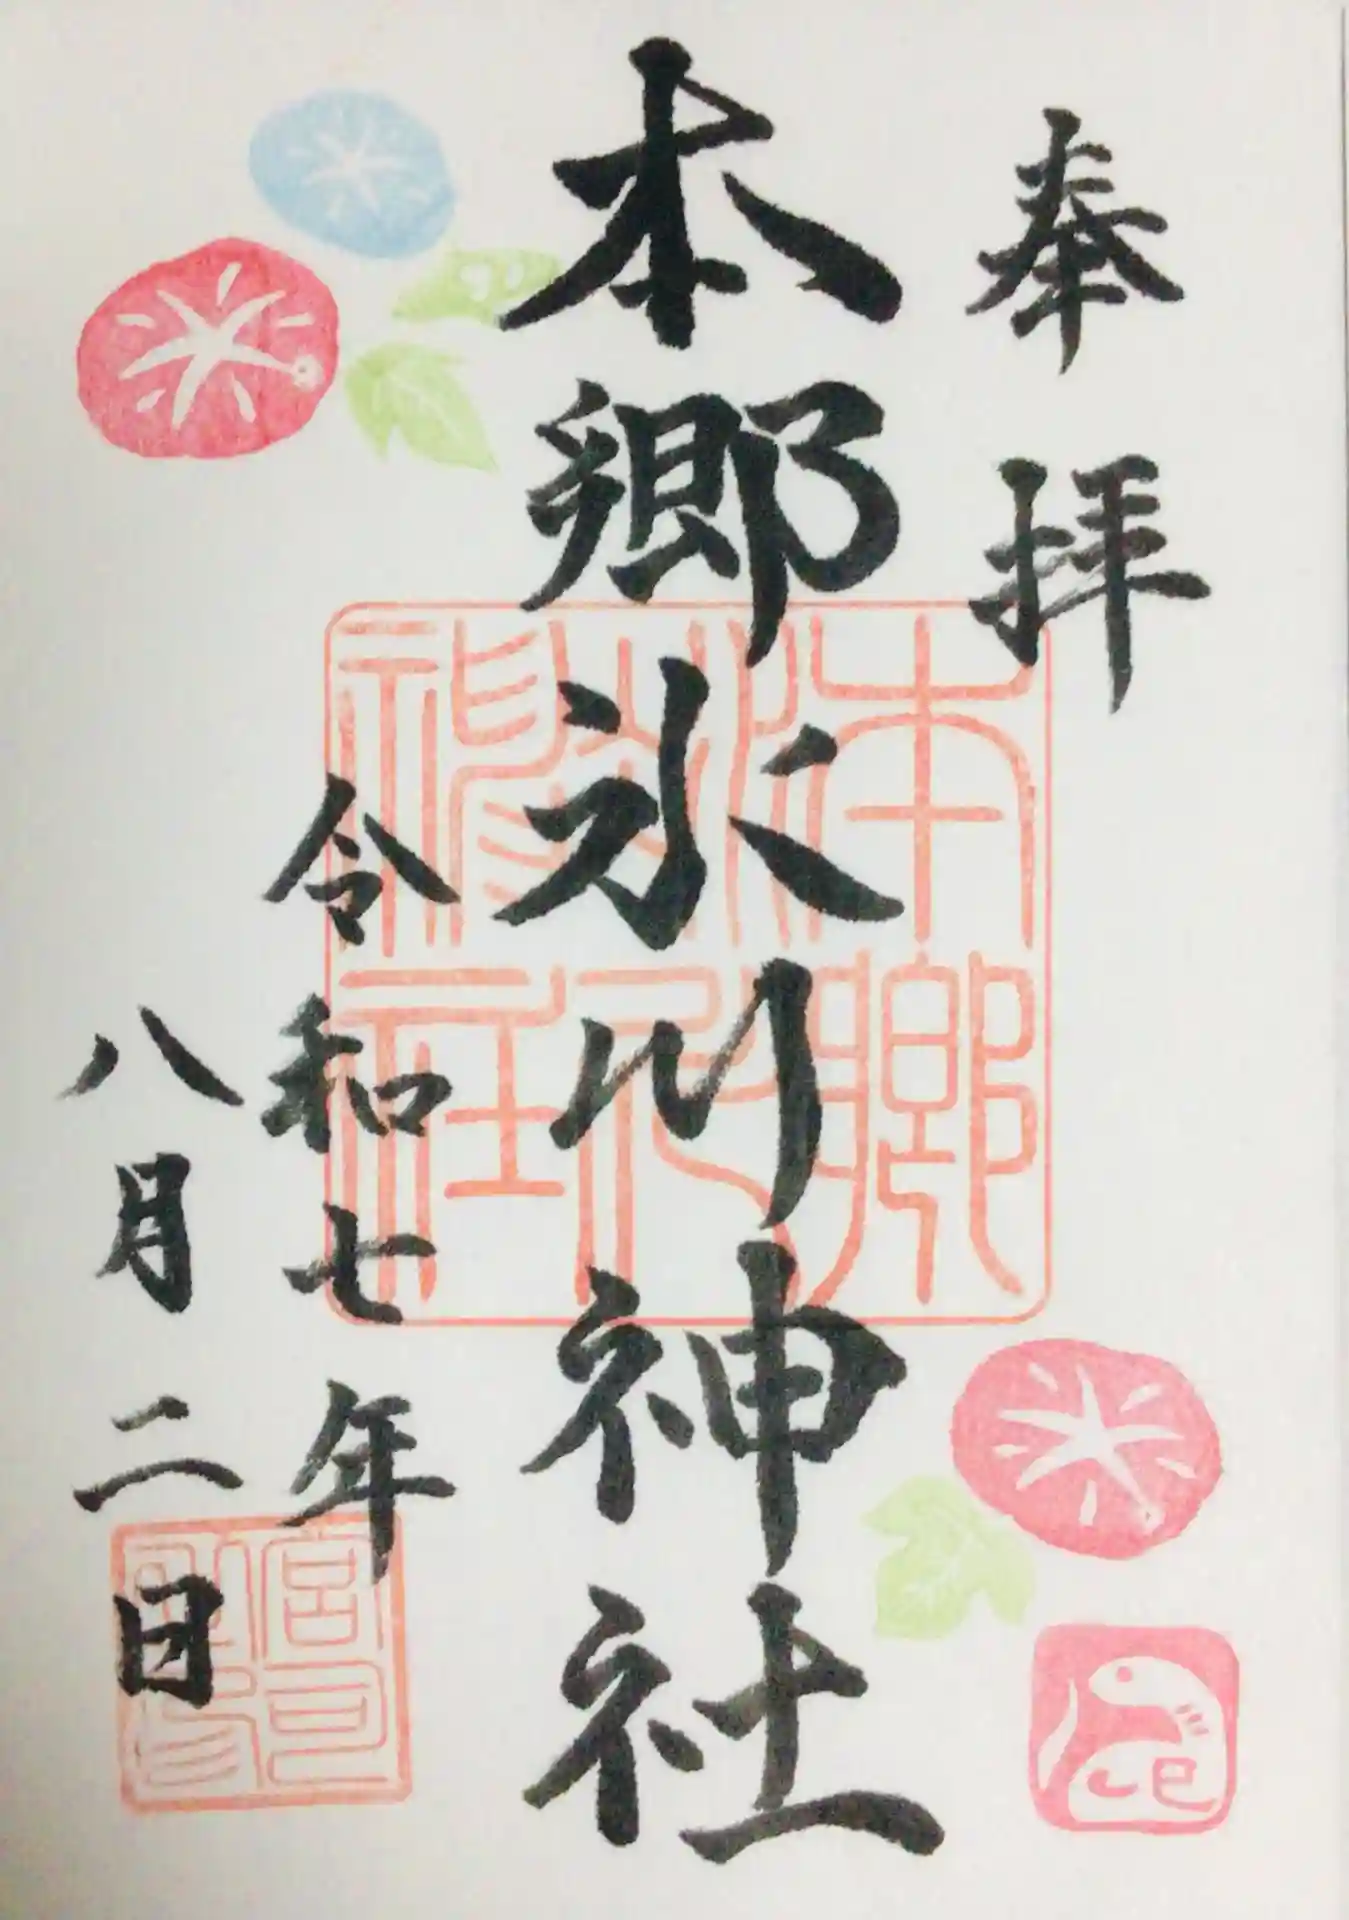 奉拝
本郷氷川神社
令和七年
八月二日
本郷
氷川
神社
宮司
巳